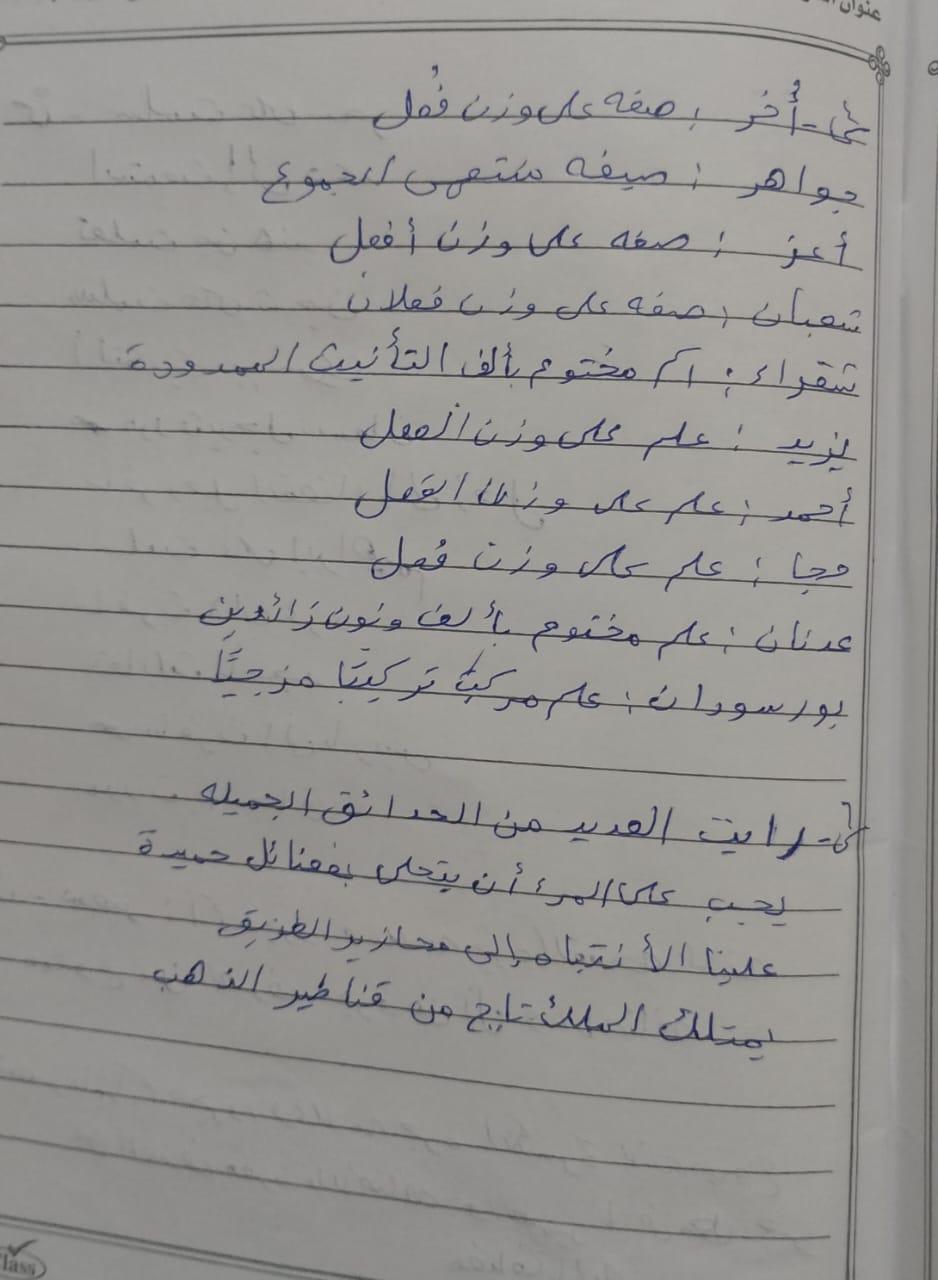 عنوان
ج٣- أُخر : صفه على وزن فُعل
جواهر : صيغه منتهى الجموع
أعز : صفه على وزن أفعل
شعبان : صفه على وزن فعلان
شقراء : اسم مختوم بألف التأنيث الممدودة
يزيد : علم على وزن الفعل
أحمد : علم على وزن الفعل
جحا : علم على وزن فُعل
عدنان : علم مختوم بألف ونون زائدين
بور سودان : علم مركبٌ تركيبًا مزجيًا
رايت العديد من الحدائق الجميله
يجب على المرء أن يتحلى بفضائل حميدة
علينا الأنتباه إلى محازير الطريق
يمتلك الملك تاج من قناطير الذهب
class